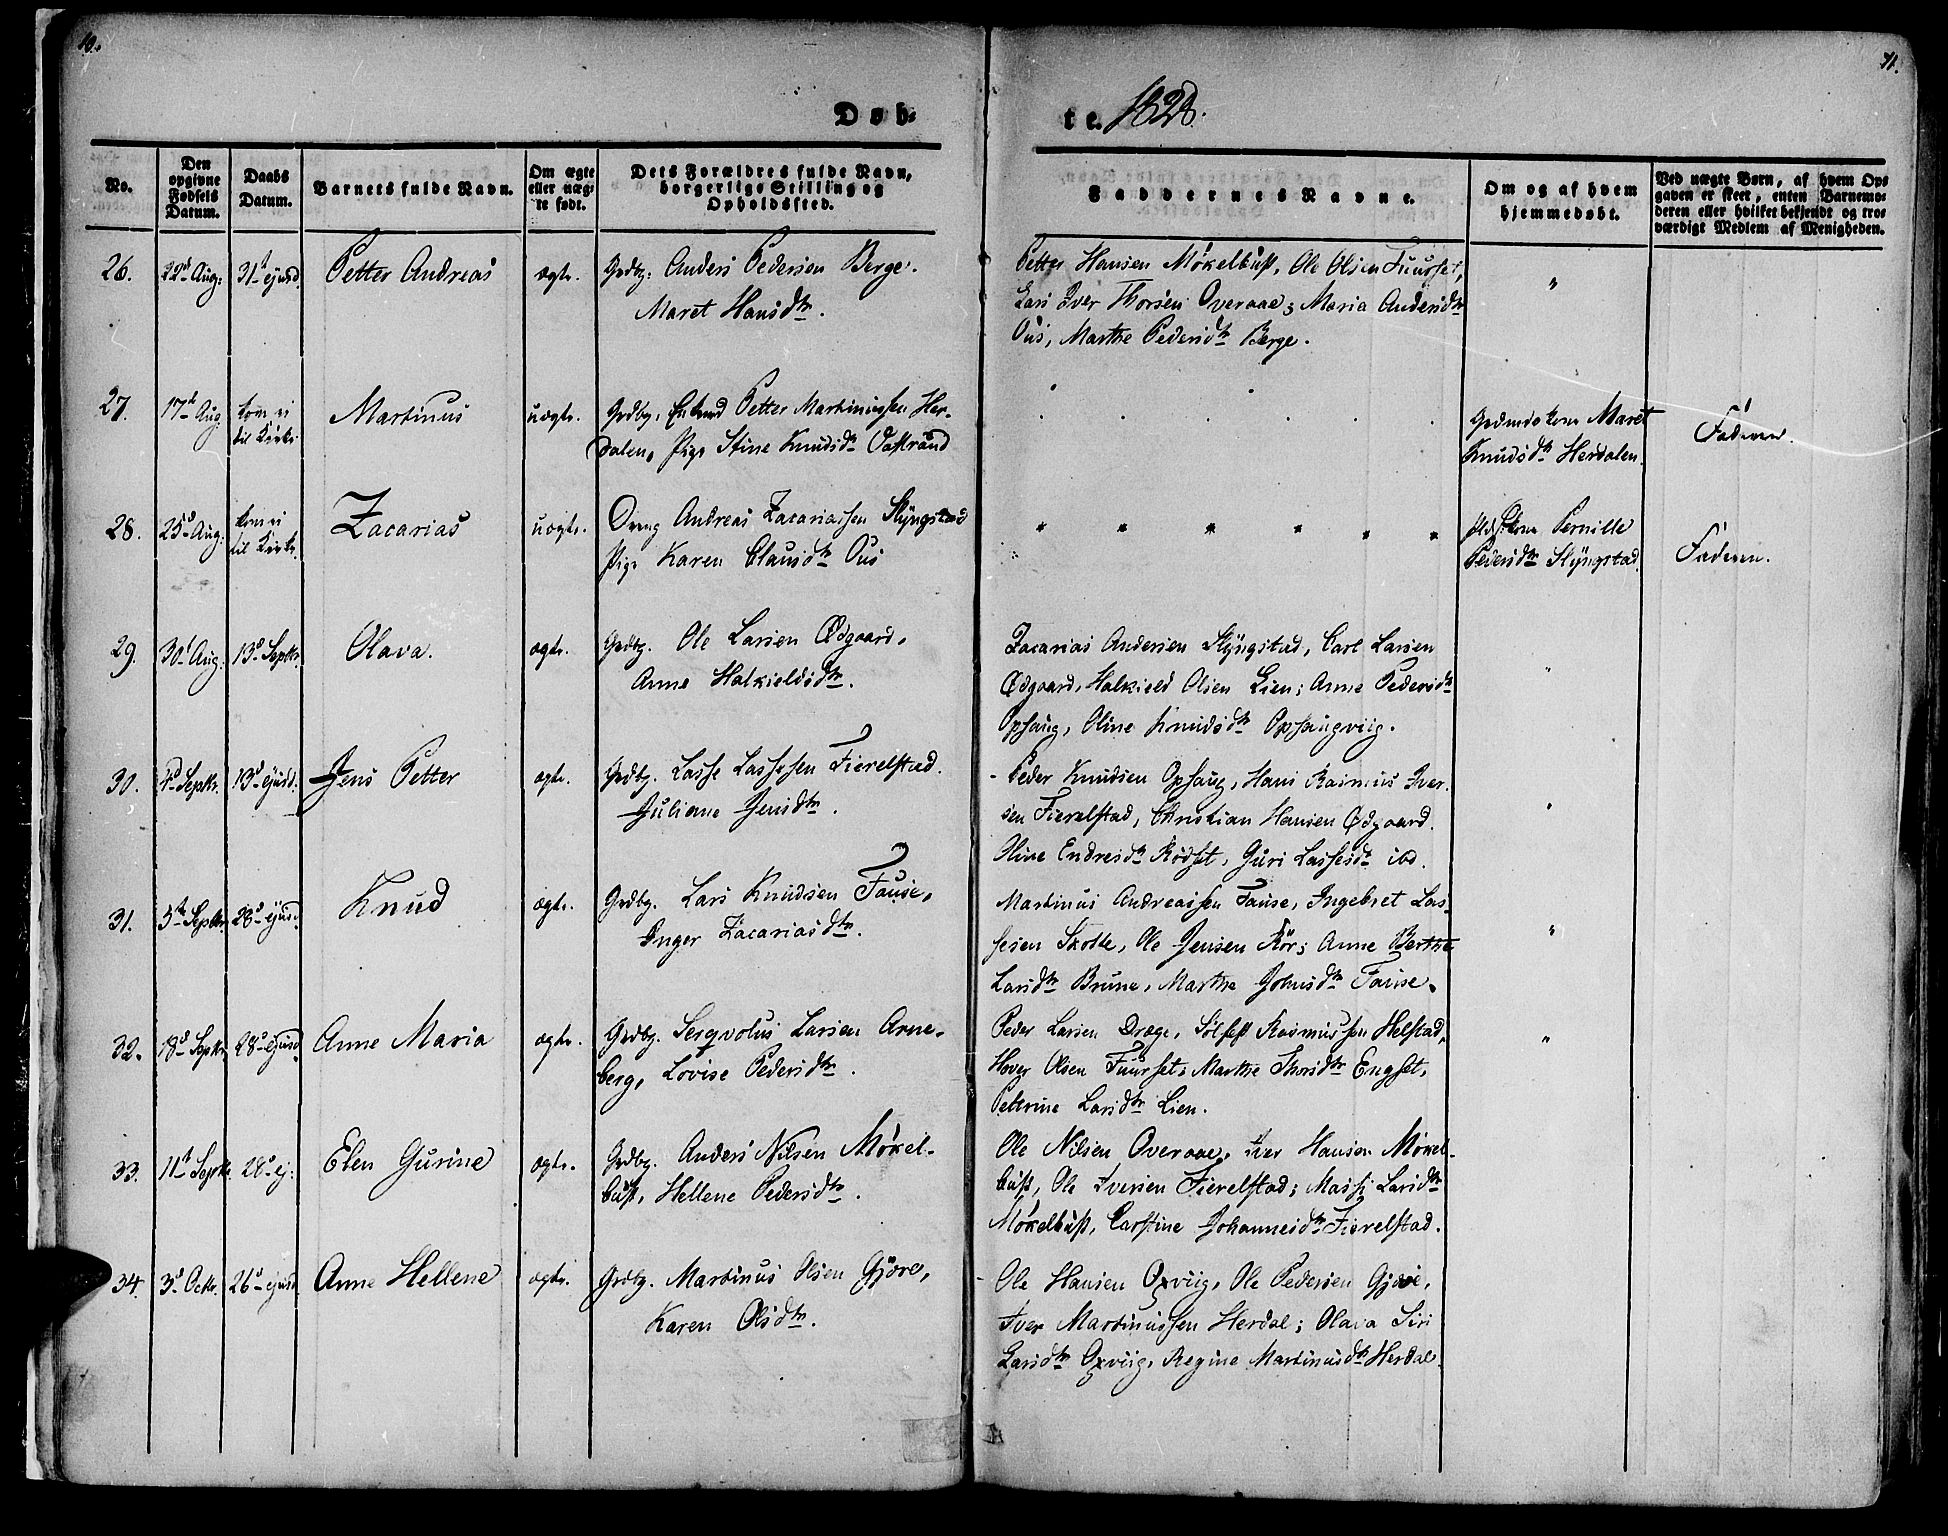 10.
11.
Døb-
te. 1828.
No.
Den opgivne Fødsels Datum.
Daabs Datum.
Barnets fulde Navn.
Om ægte eller uæg-
te født.
Dets Forældres fulde Navn,
borgerlige Stilling og
Opholdssted.
Faddernes Navne.
Om og af hvem
hjemmedøbt.
Ved uægte Børn, af hvem Op-
gaven er skeet, enten Barnemo-
deren eller hvilket bekjendt og tro-
værdigt Medlem af Menigheden.
26. 22d Aug: 31t ejusd. Petter Andreas ægte. Grdbg: Anders Pedersen Berge.
Maret Hansdtr.
Petter Hansen Møkelbust, Ole Olsen Fuurset,
Lars Iver Thorsen Overaae; Maria Andersdtr
Ous, Marthe Pedersdtr Berge. "
27. 17de Aug: kom ei
til Kirke Martinus uægte. Grdbg. Enkemd Petter Martinussen Her-
dalen, Pige Stine Knudsdtr Vastrand
Maret
Knudsdtr Herdalen. Faderen.
28. 25d Aug: kom ei
til Kirke. Zacarias uægte. Dreng Andreas Zacariassen Slyngstad
Pige Karen Clausdtr Ous
" " " " " "
Pernille
Pedersdtr Slyngstad. Faderen.
29. 30t Aug: 13d Septbr. Olava. ægte. Grdbg. Ole Larsen Ødgaard,
Anne Halkieldsdtr.
Zacarias Andersen Slyngstad, Carl Larsen
Ødgaard, Halkield Olsen Lien; Anne Pedersdtr
Ophaug, Oline Knudsdtr Ophaugviig. "
30. 4d Septbr. 13d ejusd. Jens Petter ægte. Grdbg. Lasse Lassesen Fierelstad.
Juliane Jensdtr.
- Peder Knudsen Ophaug, Hans Rasmus Iver-
sen Fierelstad, Christian Hansen Ødgaard.
Oline Endresdtr Rødset, Guri Lassesdtr ibd. "
31. 5te Septbr. 28d ejusd. Knud ægte. Grdbg. Lars Knudsen Fause,
Inger Zacariasdtr.
Martinus Andreassen Fause, Ingebret Las-
sesen Skotte, Ole Jensen Rör; Anne Berthe
Larsdtr Brune, Marthe Johnsdtr Fause. "
32. 18d Septbr. 28d ejusd. Anne Maria ægte. Grdbg. Sergvolus Larsen Arne-
berg, Lovise Pedersdtr.
Peder Larsen Drage, Sölfest Rasmussen Helstad,
Hover Olsen Fuurset; Marthe Thorsdtr Engset,
Petrine Larsdtr Lien. "
33. 11t Septbr. 28d ej: Elen Gurine ægte. Grdbg. Anders Nilsen Møkel-
bust, Hellene Pedersdtr.
Ole Nilsen Overaae, Iver Hansen Møkel-
bust, Ole Iversen Fierelstad; Massi Larsdtr
Møkelbust, Carstine Johannesdtr Fierelstad.
34. 3d Octbr. 26d ejusd. Anne Hellene ægte. Grdbg. Martinus Olsen Gjöre,
Karen Olsdtr.
- Ole Hansen Oxviig, Ole Pedersen Gjøre,
Iver Martinussen Herdal; Olava Siri
Larsdtr Oxviig, Regine Martinusdtr Herdal